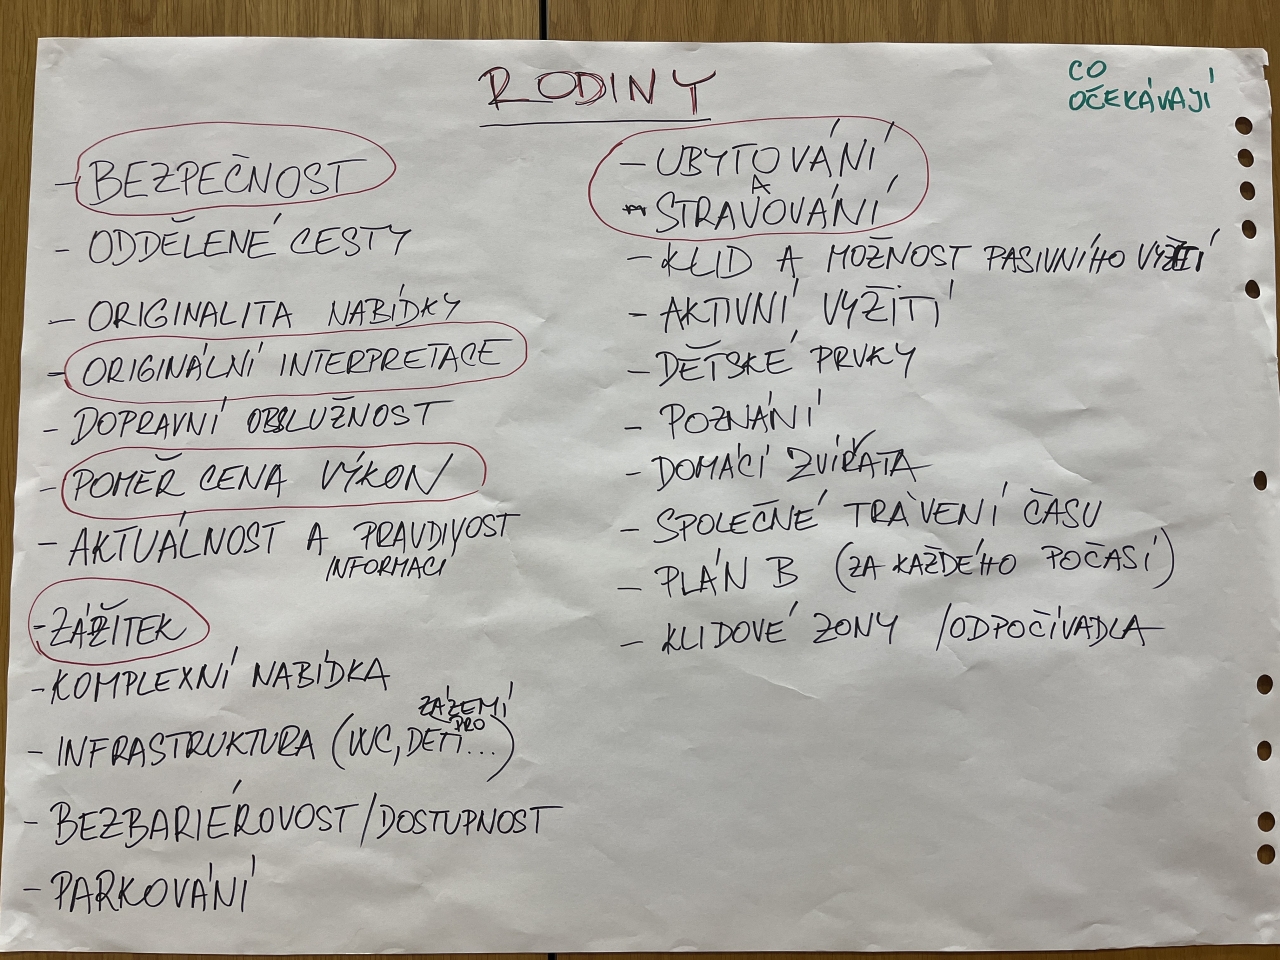 RODINY
CO
OČEKÁVAJÍ
- BEZPEČNOST
- ODDĚLENÉ CESTY
- ORIGINALITA NABÍDKY
- ORIGINÁLNÍ INTERPRETACE
- DOPRAVNÍ OBSLUŽNOST
- POMĚR CENA VÝKON
- AKTUÁLNOST A PRAVDIVOST
INFORMACÍ
- ZÁŽITEK
- KOMPLEXNÍ NABÍDKA
ZÁZEMÍ
PRO
- INFRASTRUKTURA (WC, DĚTI...)
- BEZBARIÉROVOST/DOSTUPNOST
- PARKOVÁNÍ
- UBYTOVÁNÍ
A
- STRAVOVÁNÍ
- KLID A MOŽNOST PASIVNÍHO VYŽITÍ
- AKTIVNÍ VYŽITÍ
- DĚTSKÉ PRVKY
- POZNÁNÍ
- DOMÁCÍ ZVÍŘATA
- SPOLEČNÉ TRÁVENÍ ČASU
- PLÁN B (ZA KAŽDÉHO POČASÍ)
- KLIDOVÉ ZONY /ODPOČÍVADLA